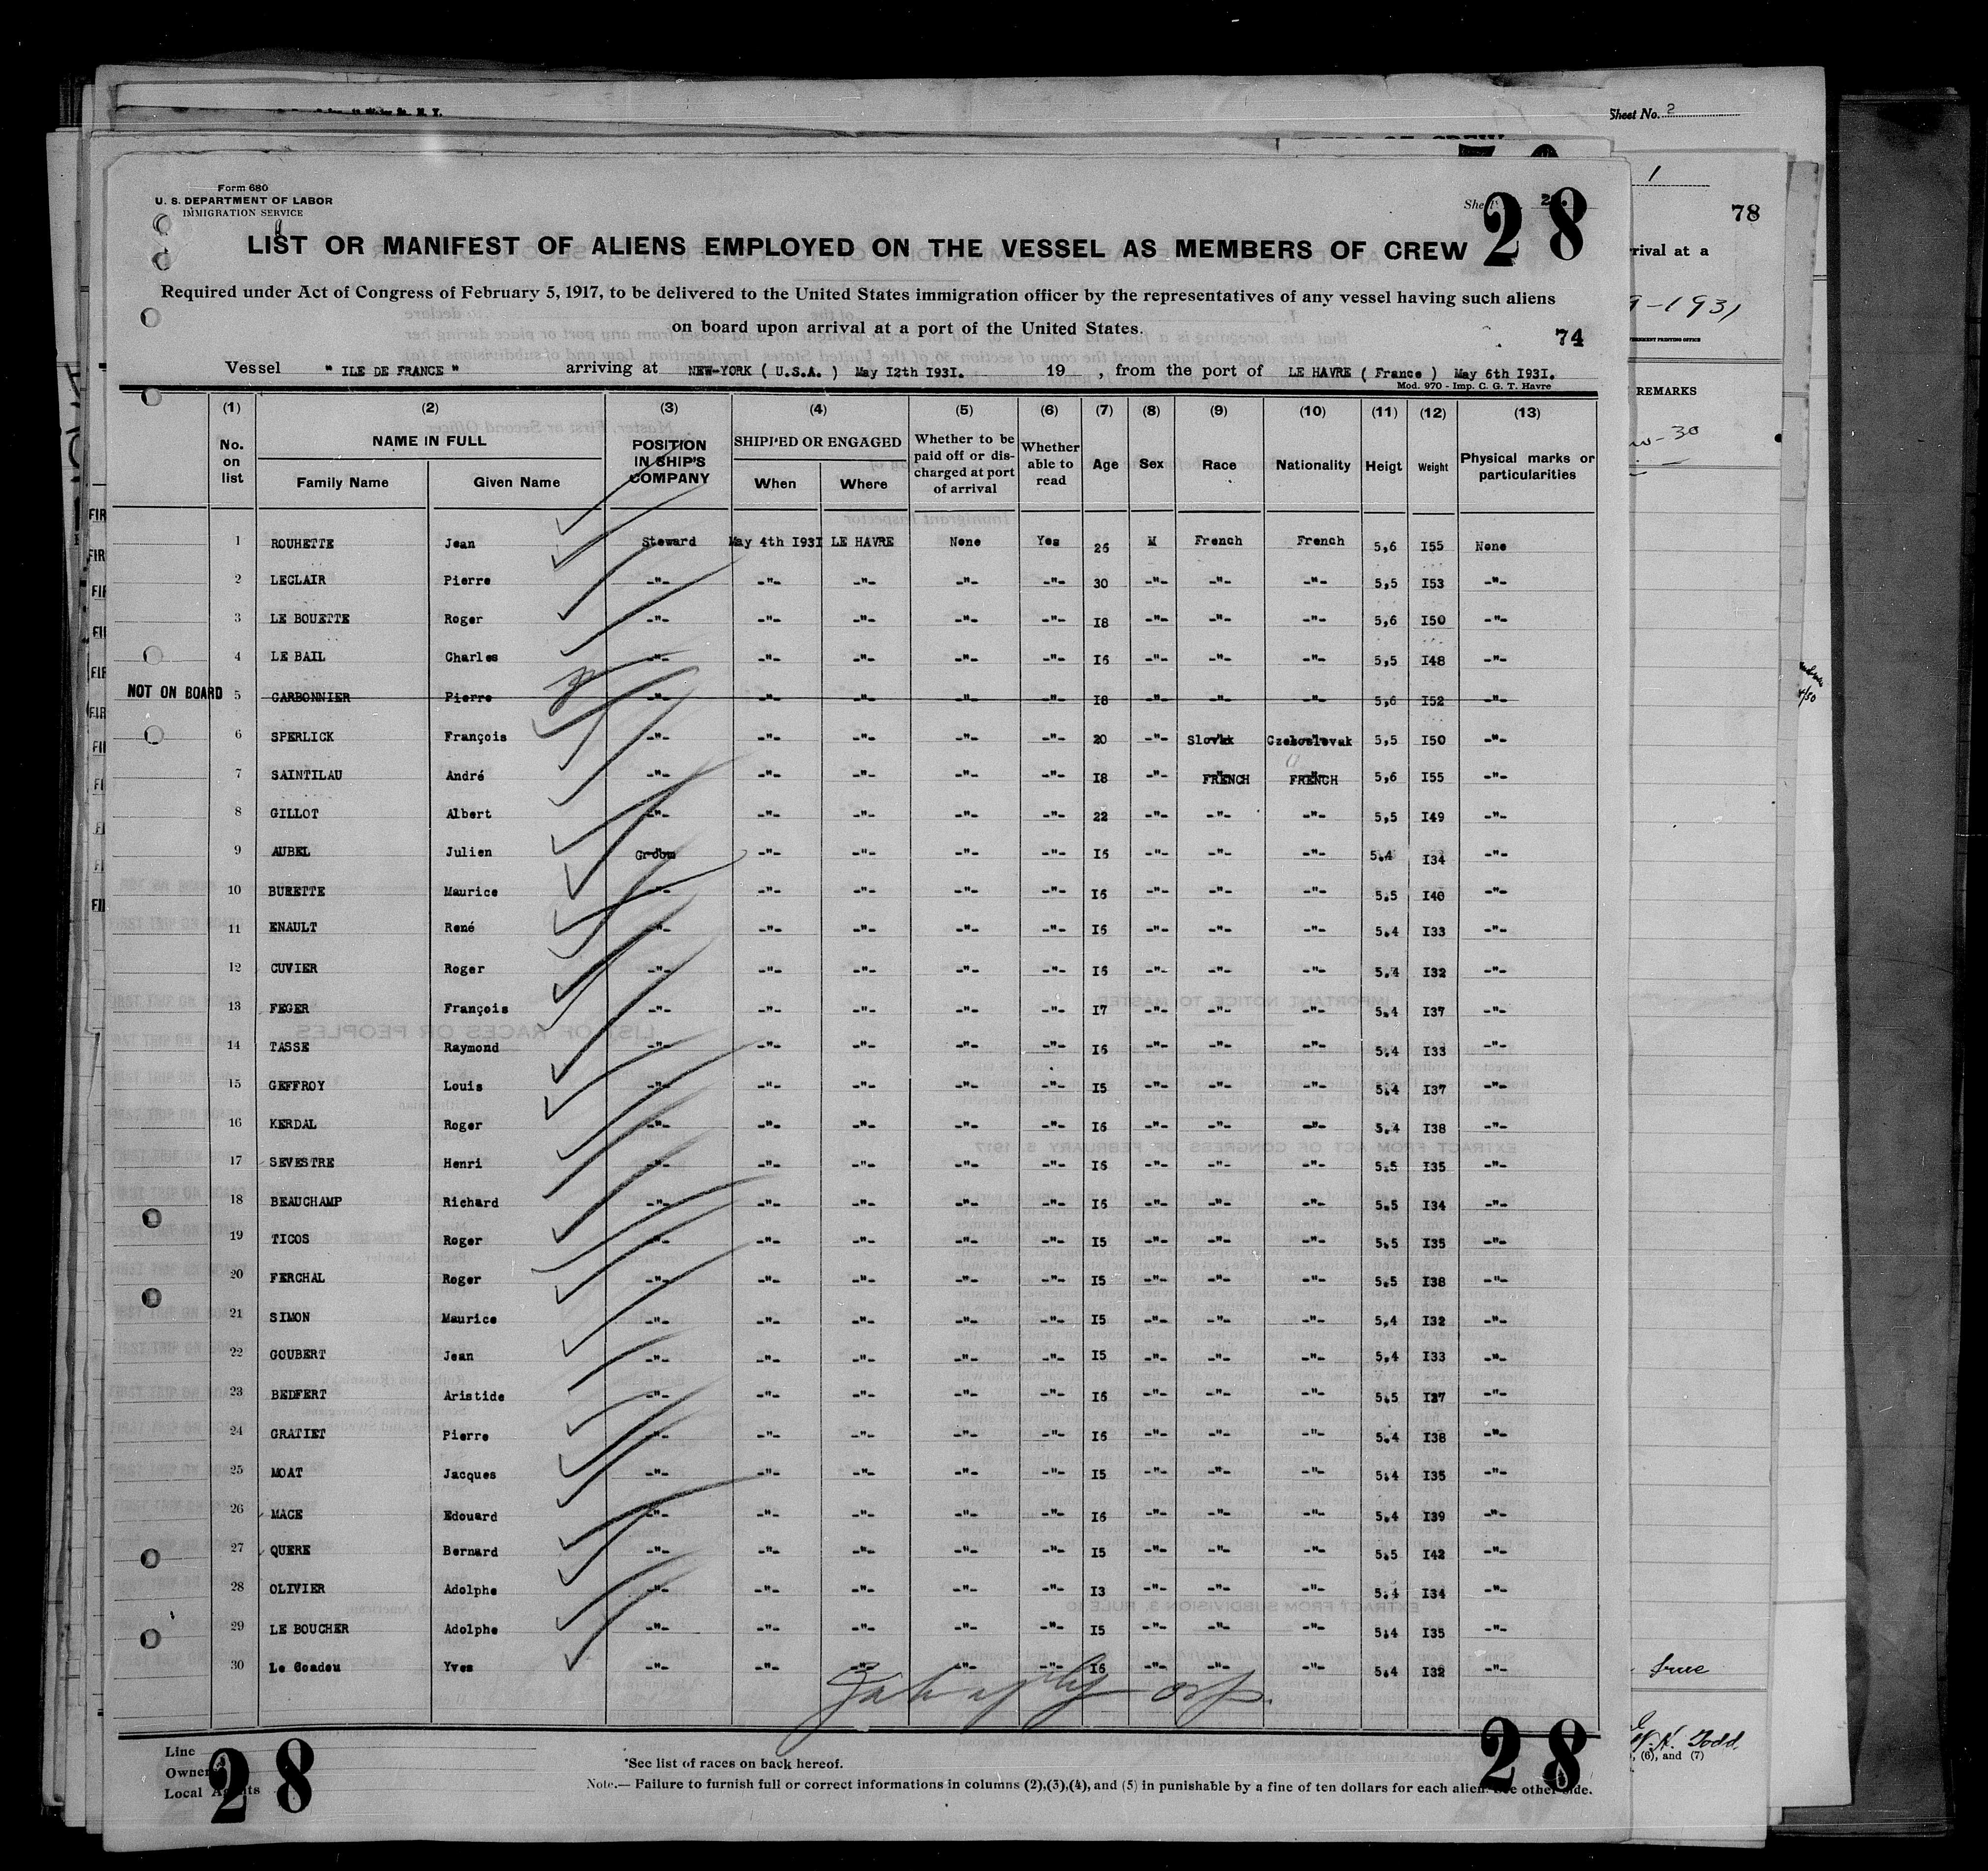 Sheet No. 2
1
78
rival at a
9-1931
REMARKS
Form 680
U. S. DEPARTMENT OF LABOR
IMMIGRATION SERVICE
28
LIST OR MANIFEST OF ALIENS EMPLOYED ON THE VESSEL AS MEMBERS OF CREW
Required under Act of Congress of February 5, 1917, to be delivered to the United States immigration officer by the representatives of any vessel having such aliens
on board upon arrival at a port of the United States.
74
Vessel " ILE DE FRANCE " arriving at NEW-YORK ( U.S.A. ) May I2th I93I. 19 , from the port of LE HAVRE ( France ) May 6th I93I.
Mod. 970 - Imp. C. G. T. Havre
(1) (2) (3) (4) (5) (6) (7) (8) (9) (10) (11) (12) (13)
No. on list NAME IN FULL Family Name Given Name POSITION IN SHIP'S COMPANY SHIPPED OR ENGAGED When Where Whether to be paid off or discharged at port of arrival Whether able to read Age Sex Race Nationality Heigt Weight Physical marks or particularities
1 ROUHETTE Jean Steward May 4th I93I LE HAVRE None Yes 26 M French French 5,6 I55 None
2 LECLAIR Pierre -"- -"- -"- -"- -"- 30 -"- -"- -"- 5,5 I53 -"-
3 LE BOUETTE Roger -"- -"- -"- -"- -"- I8 -"- -"- -"- 5,6 I50 -"-
4 LE BAIL Charles -"- -"- -"- -"- -"- I6 -"- -"- -"- 5,5 I48 -"-
NOT ON BOARD 5 CARBONNIER Pierre -"- -"- -"- -"- -"- I8 -"- -"- -"- 5,6 I52 -"-
6 SPERLICK François -"- -"- -"- -"- -"- 20 -"- Slovak Czekoslovak 5,5 I50 -"-
7 SAINTILAU André -"- -"- -"- -"- -"- I8 -"- FRENCH FRENCH 5,6 I55 -"-
8 GILLOT Albert -"- -"- -"- -"- -"- 22 -"- -"- -"- 5,5 I49 -"-
9 AUBEL Julien Groom -"- -"- -"- -"- I6 -"- -"- -"- 5.4 I34 -"-
10 BURETTE Maurice -"- -"- -"- -"- -"- I6 -"- -"- -"- 5.5 I40 -"-
11 ENAULT René -"- -"- -"- -"- -"- I6 -"- -"- -"- 5.4 I33 -"-
12 CUVIER Roger -"- -"- -"- -"- -"- I6 -"- -"- -"- 5.4 I32 -"-
13 FEGER François -"- -"- -"- -"- -"- I7 -"- -"- -"- 5.4 I37 -"-
14 TASSE Raymond -"- -"- -"- -"- -"- I6 -"- -"- -"- 5.4 I33 -"-
15 GEFFROY Louis -"- -"- -"- -"- -"- I5 -"- -"- -"- 5.4 I37 -"-
16 KERDAL Roger -"- -"- -"- -"- -"- I6 -"- -"- -"- 5.4 I38 -"-
17 SEVESTRE Henri -"- -"- -"- -"- -"- I6 -"- -"- -"- 5.5 I35 -"-
18 BEAUCHAMP Richard -"- -"- -"- -"- -"- I6 -"- -"- -"- 5.5 I34 -"-
19 TICOS Roger -"- -"- -"- -"- -"- I5 -"- -"- -"- 5.5 I35 -"-
20 FERCHAL Roger -"- -"- -"- -"- -"- I5 -"- -"- -"- 5.5 I38 -"-
21 SIMON Maurice -"- -"- -"- -"- -"- I5 -"- -"- -"- 5.4 I32 -"-
22 GOUBERT Jean -"- -"- -"- -"- -"- I5 -"- -"- -"- 5.4 I33 -"-
23 BEDFERT Aristide -"- -"- -"- -"- -"- I6 -"- -"- -"- 5.5 I27 -"-
24 GRATIET Pierre -"- -"- -"- -"- -"- I6 -"- -"- -"- 5.4 I38 -"-
25 MOAT Jacques -"- -"- -"- -"- -"- I5 -"- -"- -"- 5.4 I35 -"-
26 MACE Edouard -"- -"- -"- -"- -"- I6 -"- -"- -"- 5.4 I39 -"-
27 QUERE Bernard -"- -"- -"- -"- -"- I5 -"- -"- -"- 5.5 I42 -"-
28 OLIVIER Adolphe -"- -"- -"- -"- -"- I3 -"- -"- -"- 5.4 I34 -"-
29 LE BOUCHER Adolphe -"- -"- -"- -"- -"- I5 -"- -"- -"- 5.4 I35 -"-
30 Le Goadeu Yves -"- -"- -"- -"- -"- I6 -"- -"- -"- 5.4 I32 -"-
true
Line
Owner
Local Agents
28
*See list of races on back hereof.
28
Note.— Failure to furnish full or correct informations in columns (2),(3),(4), and (5) in punishable by a fine of ten dollars for each alien. See other side.
(6), and (7)